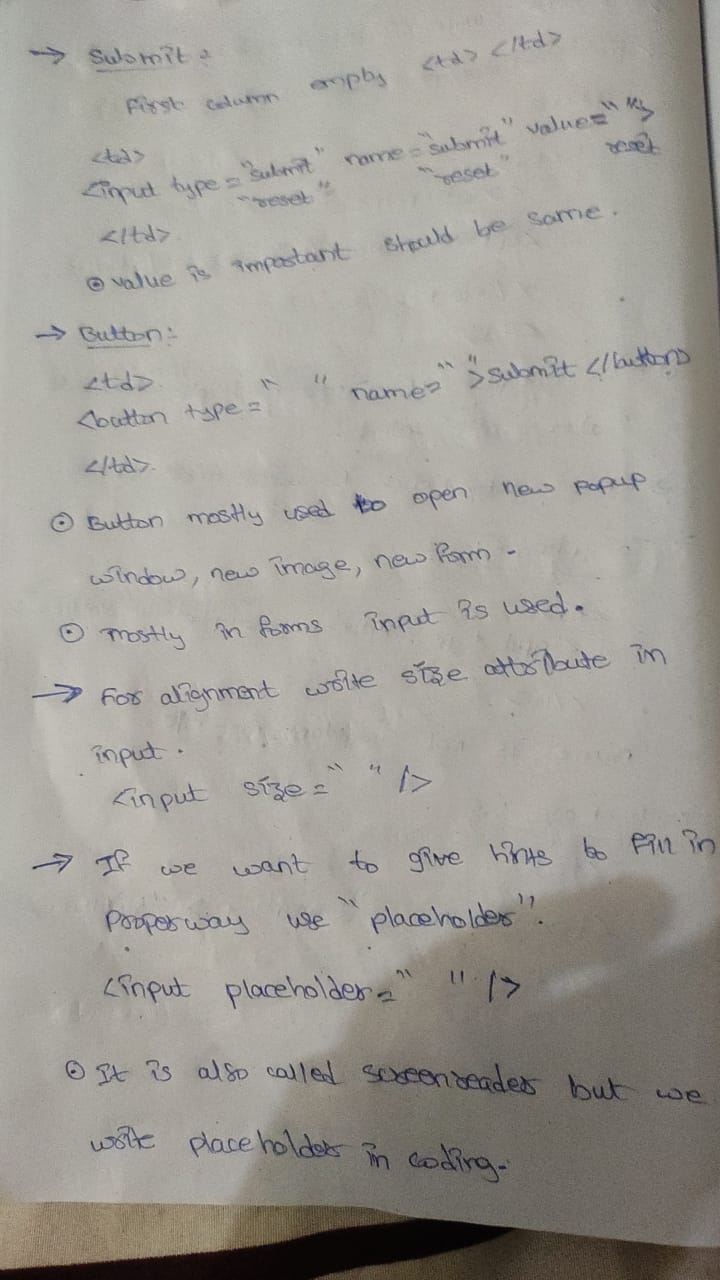 → Submit :
First column empty <td> </td>
<td>
<input type = "submit" name = "submit" value = " "/>
"reset" "reset" reset
</td>
⊙ value is important should be same.
→ Button :-
<td>
<button type = " " name = " "> submit </button>
</td>
⊙ Button mostly used to open new popup
window, new image, new form.
⊙ mostly in forms input is used.
→ For alignment write size attribute in
input.
<input size = " " />
→ If we want to give hints to fill in
proper way use "placeholder".
<input placeholder = " " />
⊙ It is also called screenreader but we
write placeholder in coding.